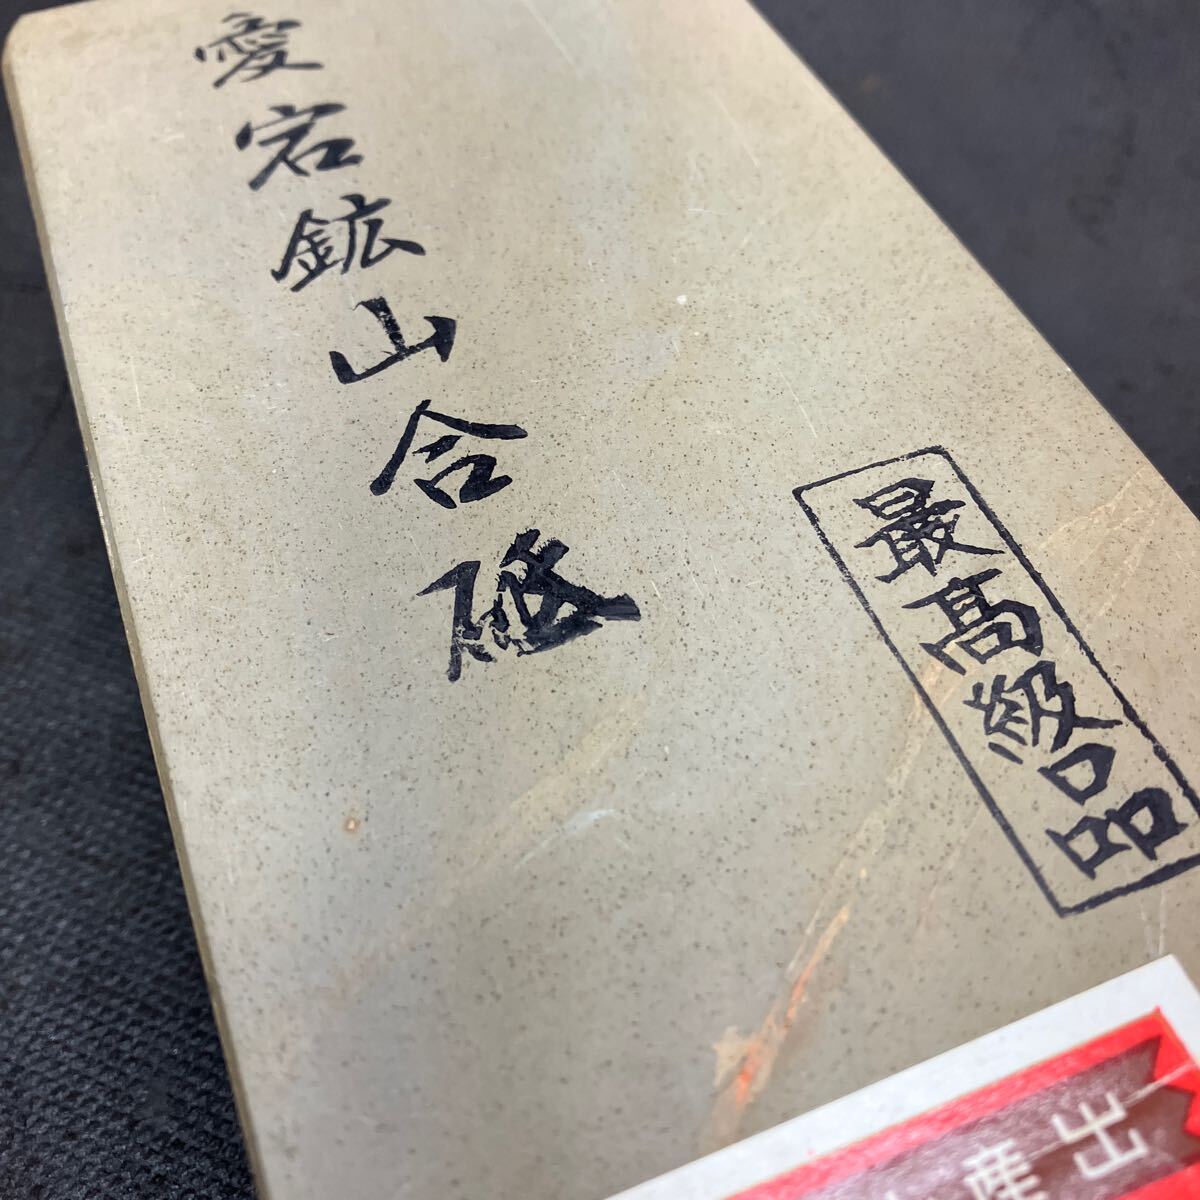 愛宕鉱山合砥
最高級品
出産